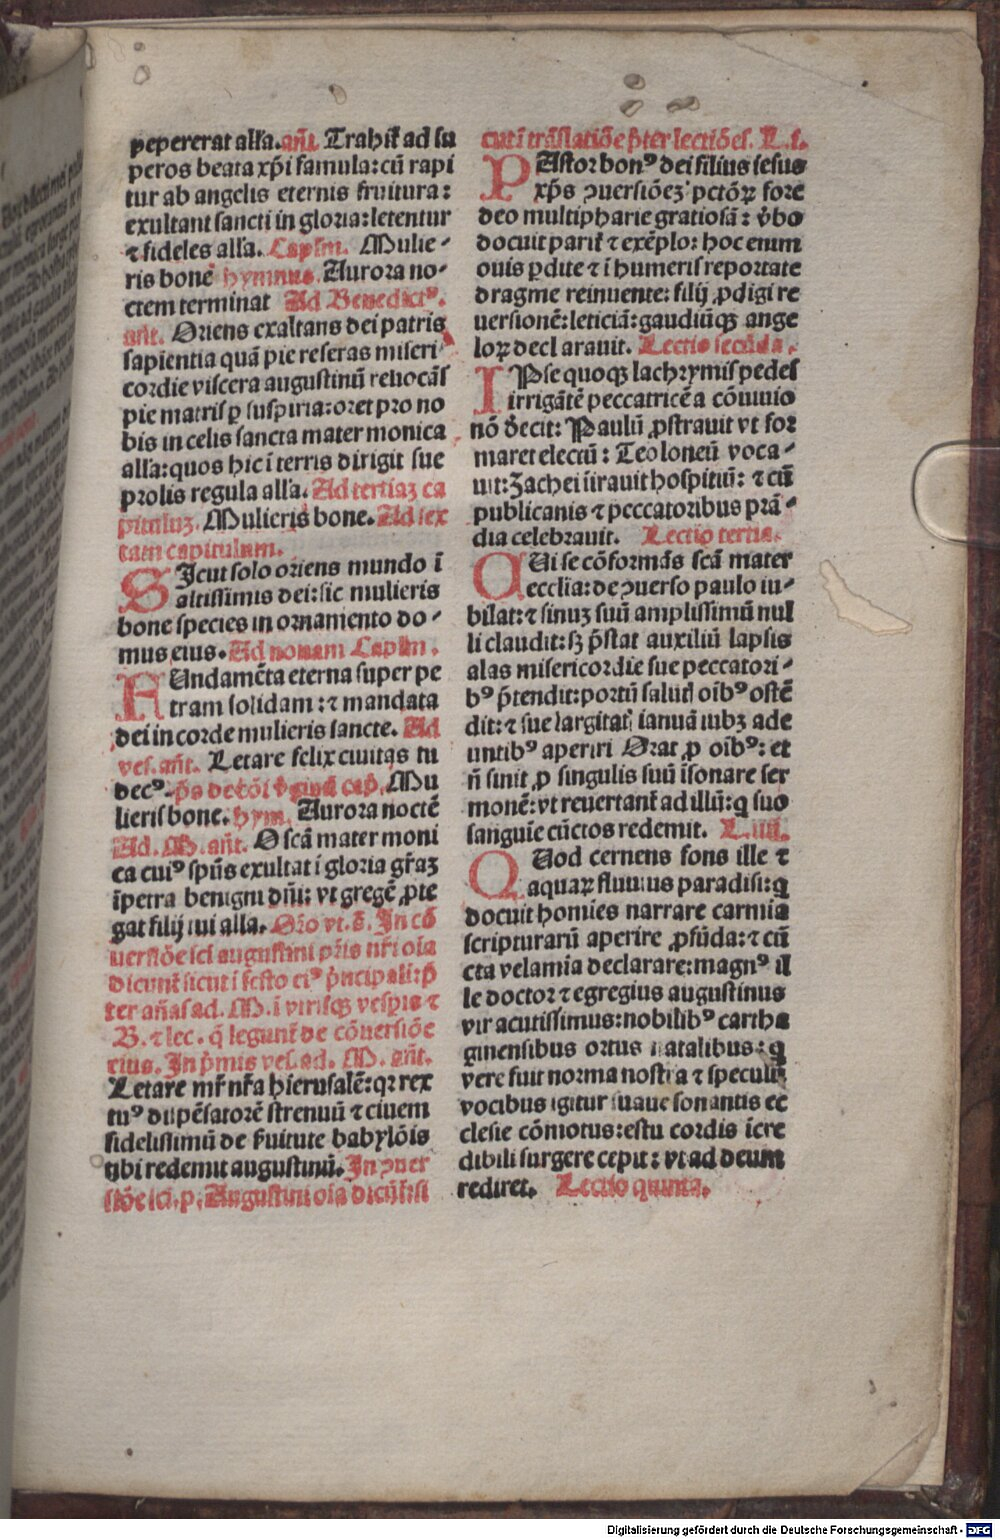 pepererat alľa. añt. Trahiť ad su
peros beata xp̃i famula: cũ rapi
tur ab angelis eternis fruitura:
exultant sancti in gloria: letentur
⁊ fideles alľa. Caplm̃. Mulie-
ris bone hymnus. Aurora no-
ctem terminat Ad Benedictꝰ.
añt. Oriens exaltans dei patris
sapientia quã pie reseras miseri
cordie viscera augustinũ reuocãs
pie matris ꝑ suspiria: oret pro no
bis in celis sancta mater monica
alľa: quos hic ĩ terris dirigit sue
prolis regula alľa. Ad tertiaʒ ca
pituluʒ. Mulieris bone. Ad sex
tam capitulum.
SIcut solo oriens mundo ĩ
altissimis dei: sic mulieris
bone species in ornamento do-
mus eius. Ad nonam Caplm̃.
FUndamẽta eterna super pe
tram solidam: ⁊ mandata
dei in corde mulieris sancte. Ad
ves. añt. Letare felix ciuitas tu
decꝰ. Mu
lieris bone. hym. Aurora noctẽ
Ad. M. añt. O scã mater moni
ca cuiꝰ spũs exultat ĩ gloria gr̃aʒ
ĩpetra benigni dñi: vt gregẽ ꝓte
gat filij tui alla. Or̃o vt. s̃. In cõ
uersiõe sci augustini pr̃is nr̃i oĩa
dicunt̃ sicut ĩ festo eiꝰ p̃ncipali: p̃
ter añas ad. M. ĩ vtrisqʒ vesp̃is ⁊
B. ⁊ lec. q̃ legunt̃ de cõuersiõe
eius. In p̃mis ves. ad. M. añt.
Letare mr̃ nr̃a hierusalẽ: qꝛ rex
tuꝰ dispẽsatorẽ strenuũ ⁊ ciuem
fidelissimũ de s̃uitute babylõis
tibi redemit augustinũ. In ꝯuer
siõe sci. p. Augustini oĩa dicũt̃: si
cuti trãslatiõe p̃ter lectiões. L. i.
PAstor bonꝰ dei filius iesus
xp̃s ꝯuersiõeʒ pctõꝝ fore
deo multipharie gratiosã: v̓bo
docuit pariť ⁊ exẽplo: hoc enim
ouis ꝑdite ⁊ ĩ humeris reportate
dragme reinuente: filij ꝓdigi re
uersionẽ: leticiã: gaudiũqʒ ange
loꝝ declarauit. Lectio secũda.
IPse quoqʒ lachrymis pedes
irrigãtẽ peccatricẽ a cõuiuio
nõ deiecit: Paulũ ꝓstrauit vt for
maret electũ: Teoloneũ voca-
uit: Zachei ĩtrauit hospitiũ: ⁊ cũ
publicanis ⁊ peccatoribus prã-
dia celebrauit. Lectio tertia.
CUi se cõformãs scã mater
ecclĩa: de ꝯuerso paulo iu-
bilat: ⁊ sinuʒ suũ amplissimũ nul
li claudit: sʒ p̃stat auxiliũ lapsis
alas misericordie sue peccatori-
bꝰ p̃tendit: portũ saluť oĩbꝰ ostẽ
dit: ⁊ sue largitať ianuã iubʒ ade
untibꝰ aperiri Orat ꝓ oĩbꝰ: et
ñ sinit ꝓ singulis suũ ĩsonare ser
monẽ: vt reuertant̃ ad illũ: q suo
sanguĩe cũctos redemit. L. iiij.
QUod cernens fons ille ⁊
aquaꝝ fluuius paradisi: q
docuit hoĩes narrare carmĩa
scripturarũ aperire ꝓfũda: ⁊ cũ
cta velamĩa declarare: magnꝰ il
le doctor ⁊ egregius augustinus
vir acutissimus: nobilibꝰ cartha
ginensibus ortus natalibus: q
vere fuit norma nostra ⁊ speculũ
vocibus igitur suaue sonantis ec
clesie cõmotus: estu cordis ĩcre
dibili surgere cepit: vt ad deum
rediret. Lectio quinta.
Digitalisierung gefördert durch die Deutsche Forschungsgemeinschaft - DFG